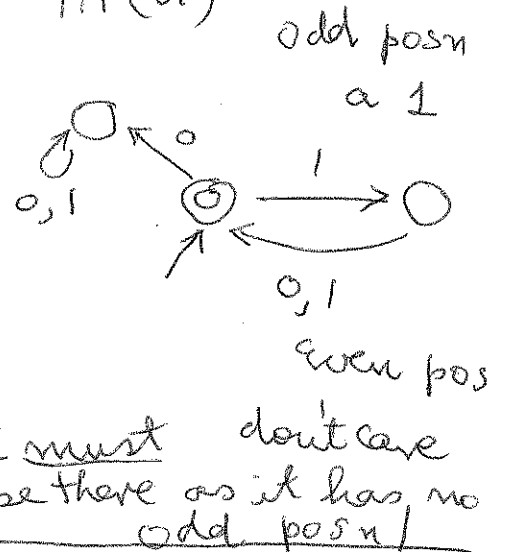 odd posn
a 1
0
1
0,1
0,1
even pos
must don't care
be there as it has no
odd posn!